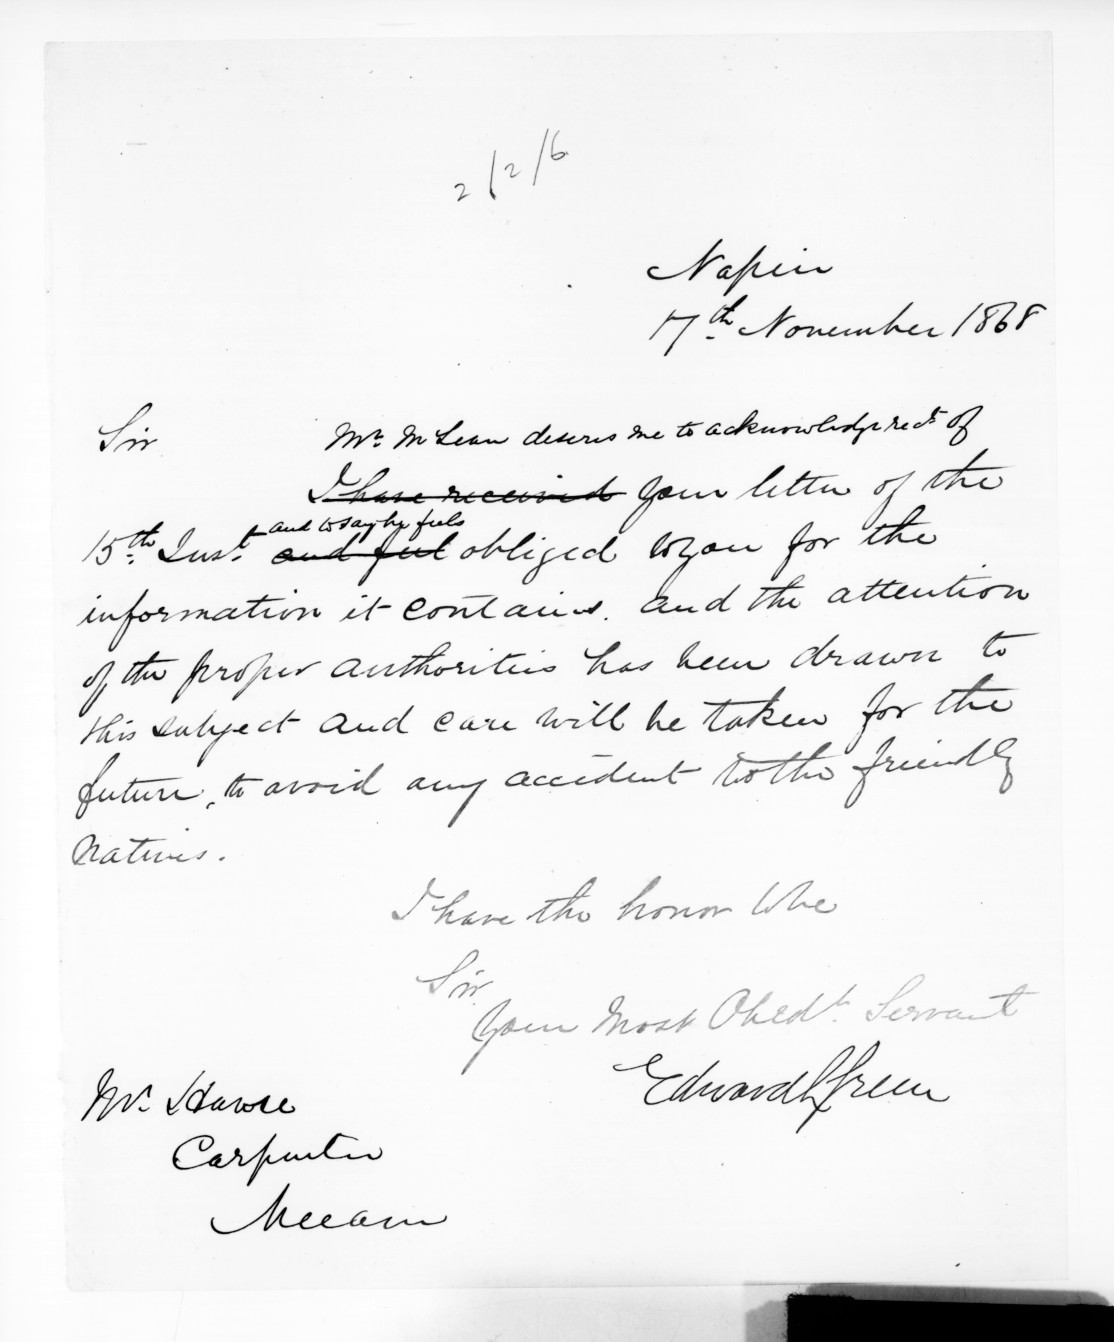 2/2/6
Napier
17th November 1868
Sir
Mr. McLean desires me to acknowledge rect. of
I have received your letter of the
and to say he feels
15th Inst. and feel obliged to you for the
information it contains. and the attention
of the proper authorities has been drawn to
this subject and care will be taken for the
future, to avoid any accident to the friendly
natives.
I have the honor to be
Sir
Your Most Obedt. Servant
Edward L Green
Mr. Hawse
Carpenter
Meeanee